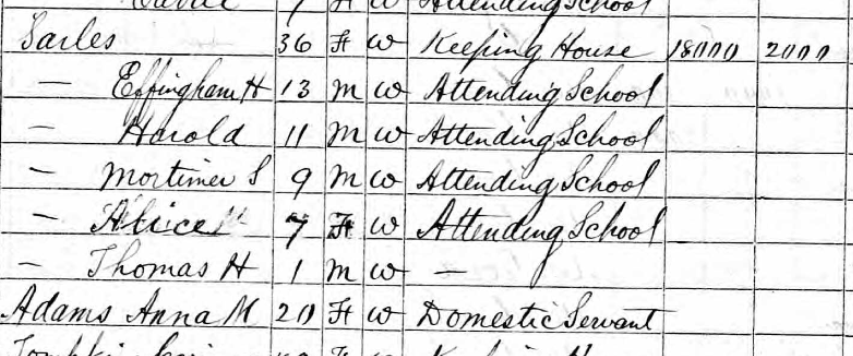 7 F W Attending School
Sarles 36 F W Keeping House 18000 2000
— Effingham H 13 M W Attending School
— Harold 11 M W Attending School
— Mortimer S 9 M W Attending School
— Alice 7 F W Attending School
— Thomas H 1 M W —
Adams Anna M 20 F W Domestic Servant